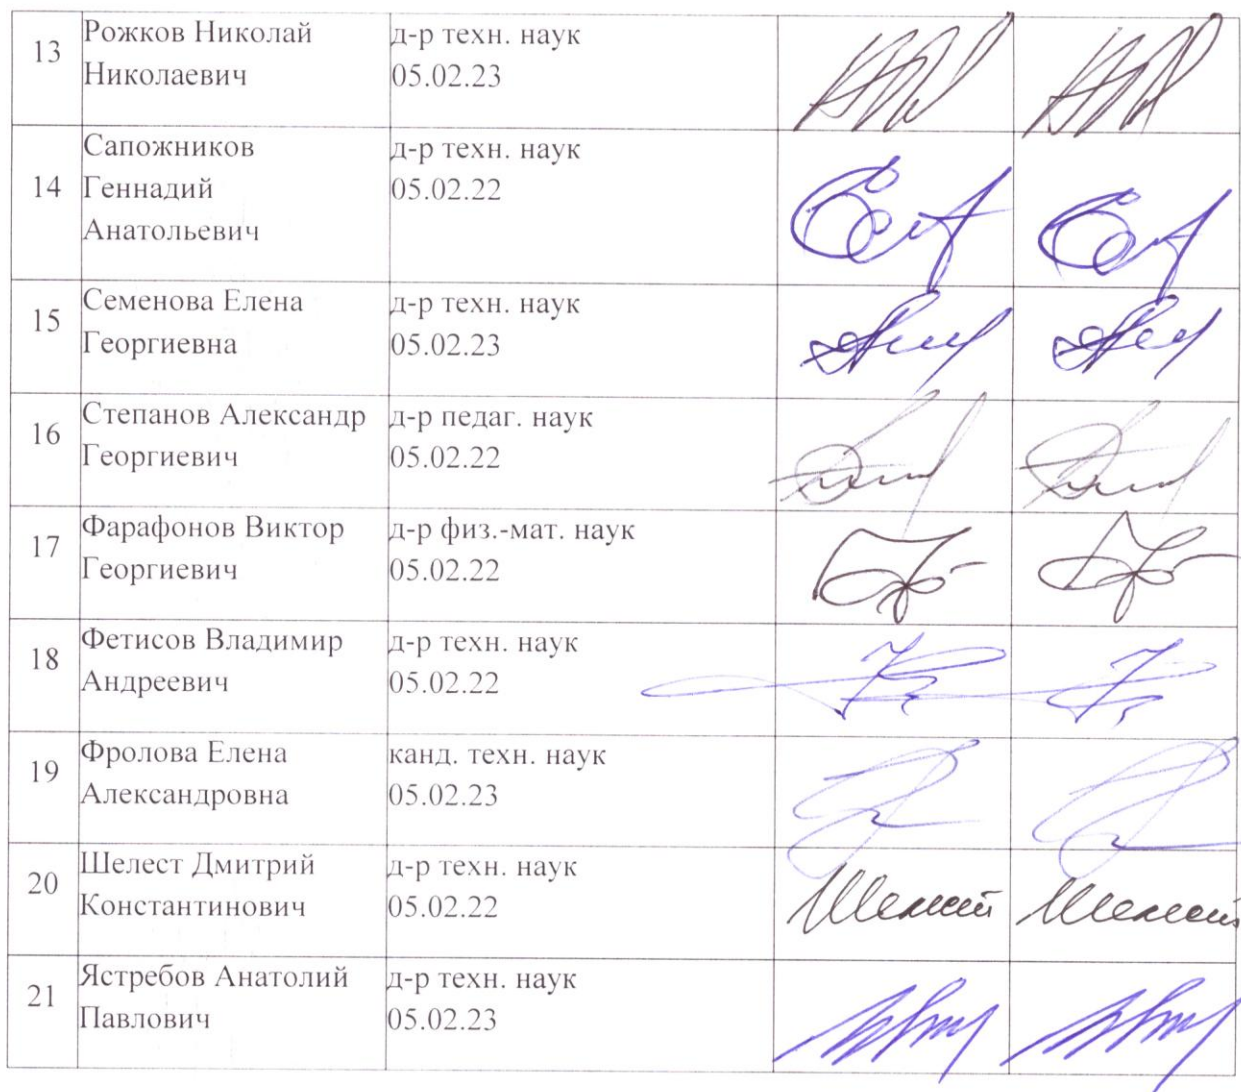 13
Рожков Николай
Николаевич
д-р техн. наук
05.02.23
14
Сапожников
Геннадий
Анатольевич
д-р техн. наук
05.02.22
15
Семенова Елена
Георгиевна
д-р техн. наук
05.02.23
16
Степанов Александр
Георгиевич
д-р педаг. наук
05.02.22
17
Фарафонов Виктор
Георгиевич
д-р физ.-мат. наук
05.02.22
18
Фетисов Владимир
Андреевич
д-р техн. наук
05.02.22
19
Фролова Елена
Александровна
канд. техн. наук
05.02.23
20
Шелест Дмитрий
Константинович
д-р техн. наук
05.02.22
Шелест Шелест
21
Ястребов Анатолий
Павлович
д-р техн. наук
05.02.23